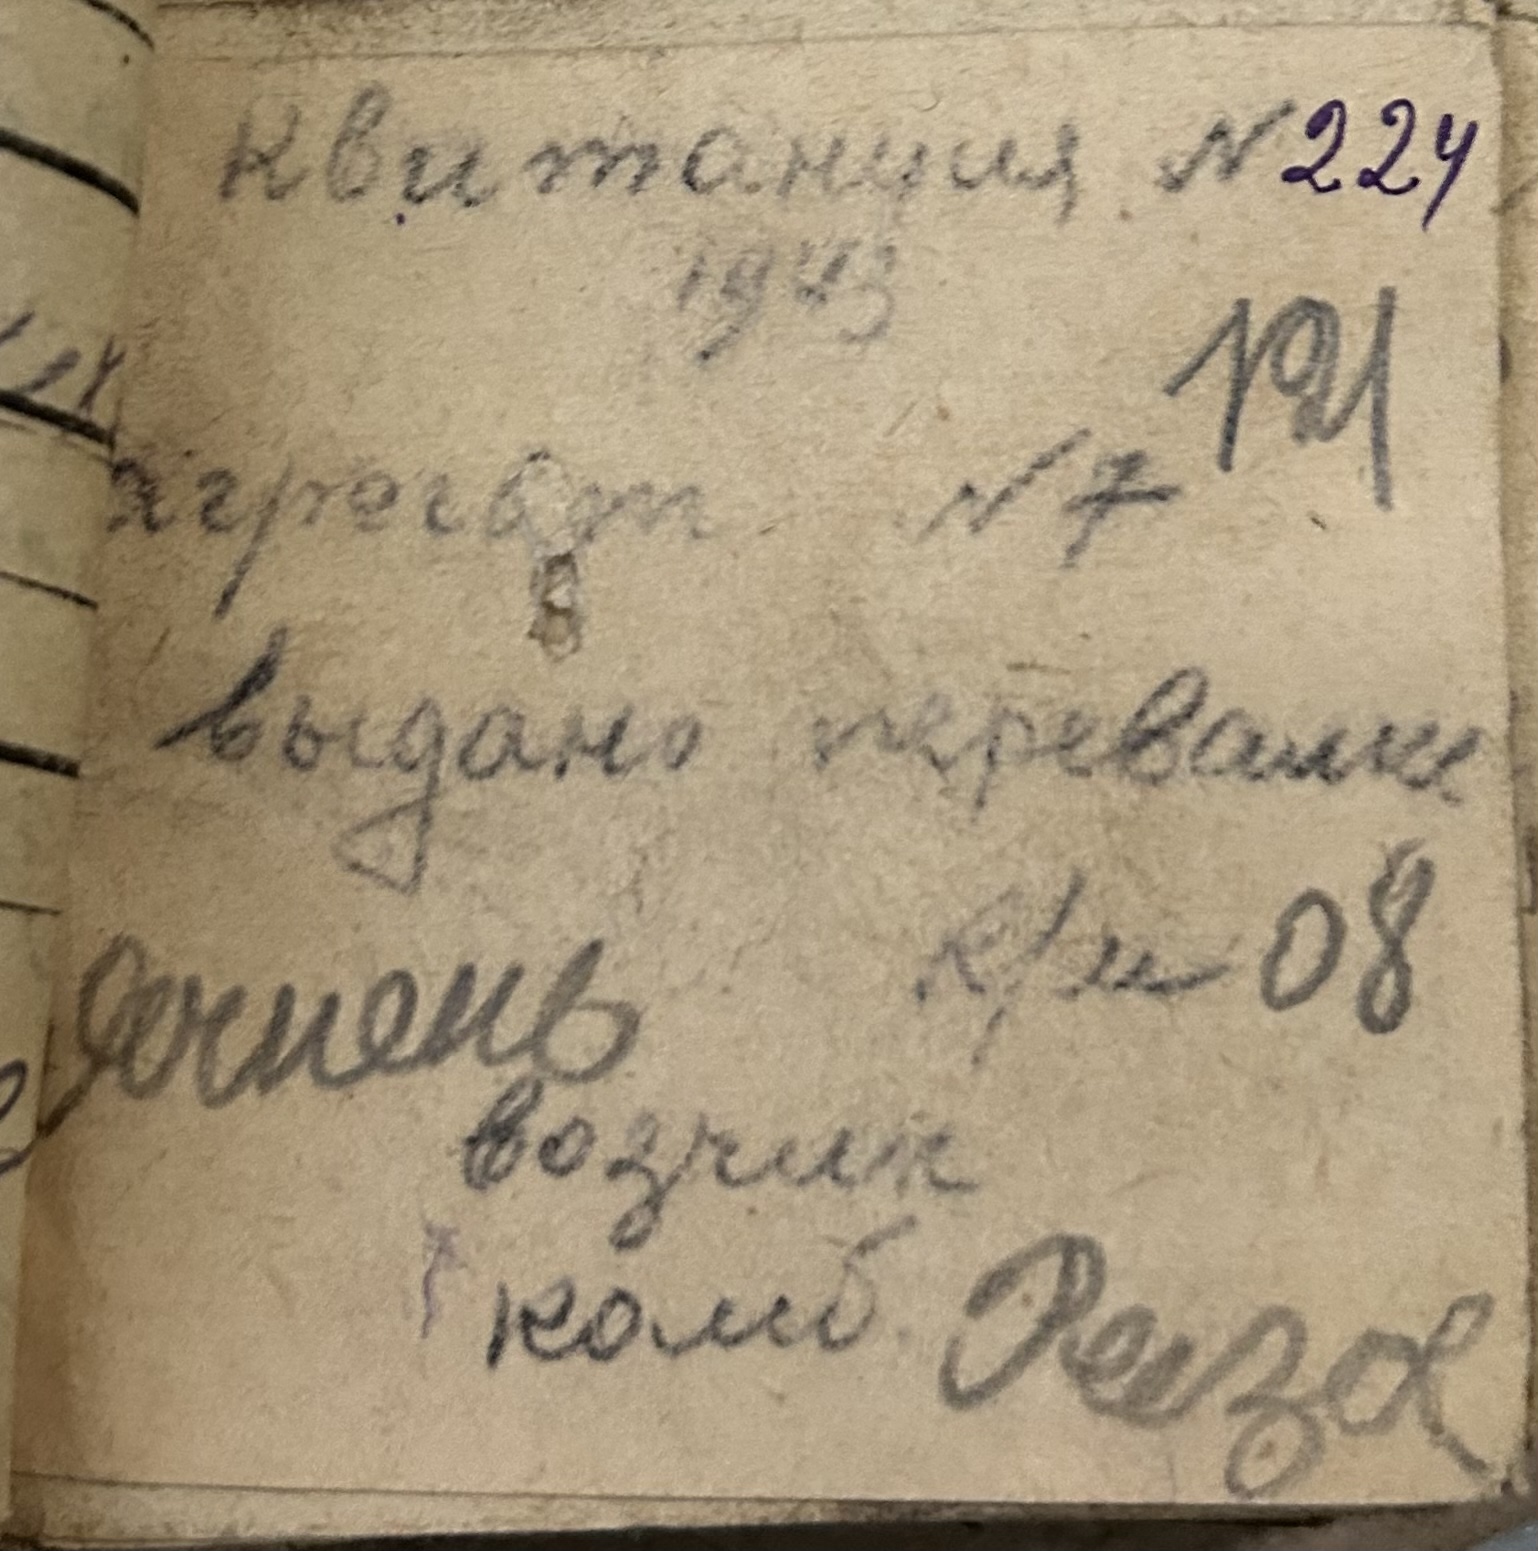 Квитанция № 224
1943
191
агрегат № 7
выдано перевалки
к/м 08
Ячмень
возчик
комб Реиза